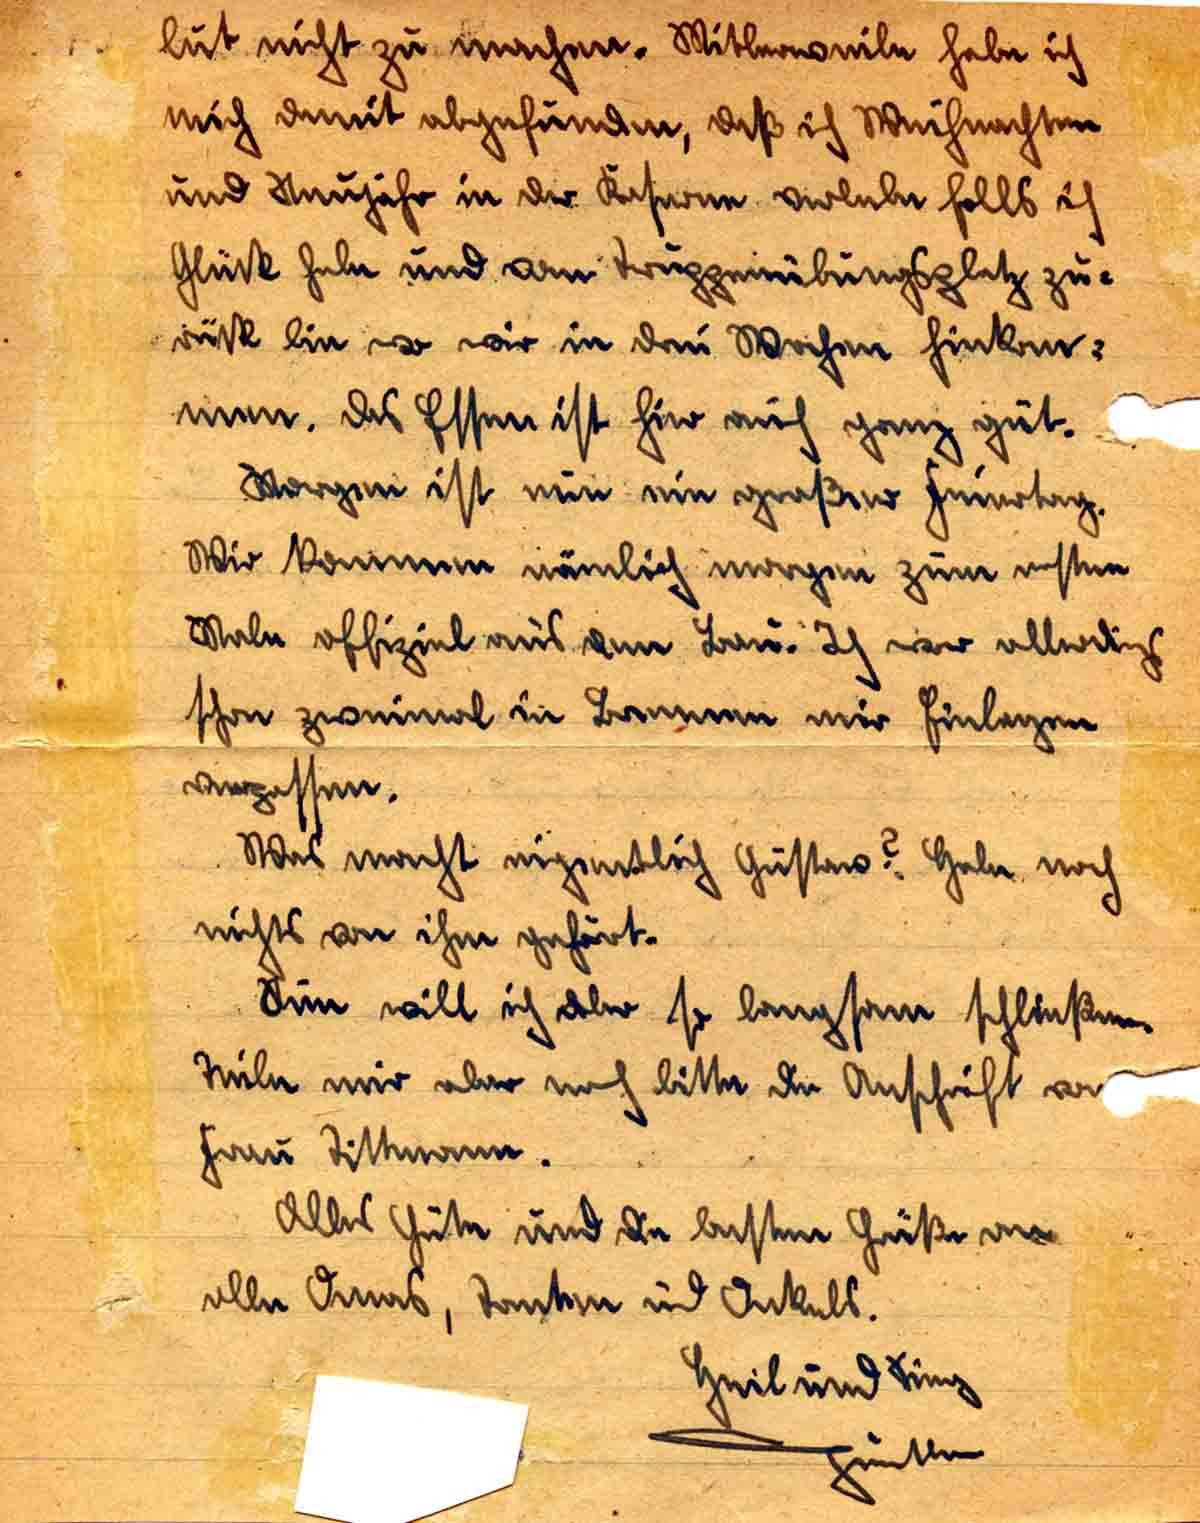 lut nicht zu machen. Mitlerweile habe ich
mich damit abgefunden, daß ich Weihnachten
und Neujahr in der Kaserne verlebe falls ich
Glück habe und vom Truppenübungsplatz zu-
rück bin wo wir in drei Wochen hinkom-
men. Das Essen ist hier auch ganz gut.
Morgen ist nun ein großer Feiertag.
Wir kommen nämlich morgen zum ersten
Male offiziel aus dem Bau. Ich war allerdings
schon zweimal in Bremen mir Einlagen
verpassen.
Was macht eigentlich Gustav? Habe noch
nichts von ihm gehört.
Nun will ich aber so langsam schließen.
Teile mir aber noch bitte die Anschrift von
Frau Tittmann.
Alles Gute und die besten Grüße an
alle Omas, Tanten und Onkels.
Heil und Sieg
Günther